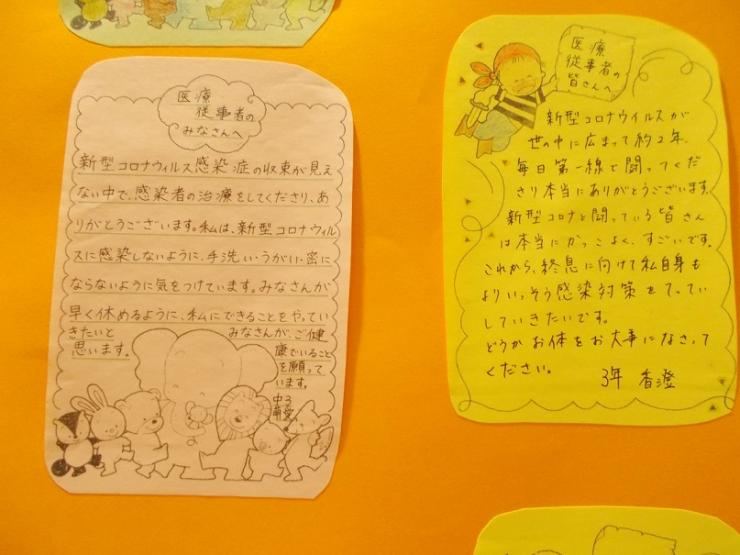 医療
従事者の
みなさんへ
新型コロナウィルス感染症の収束が見え
ない中で、感染者の治療をしてくださり、あ
りがとうございます。私は、新型コロナウィル
スに感染しないように、手洗い・うがい・密に
ならないように気をつけています。みなさんが
早く休めるように、私にできることをやってい
きたいと
思います。
みなさんが、ご健
康でいること
を願って
います。
中3
萌愛
医療
従事者の
皆さんへ
新型コロナウイルスが
世の中に広まって約2年、
毎日第一線で闘ってくだ
さり本当にありがとうございます。
新型コロナと闘っている皆さん
は本当にかっこよく、すごいです。
これから、終息に向けて私自身も
よりいっそう感染対策をてってい
していきたいです。
どうかお体をお大事になさって
ください。
3年 香澄